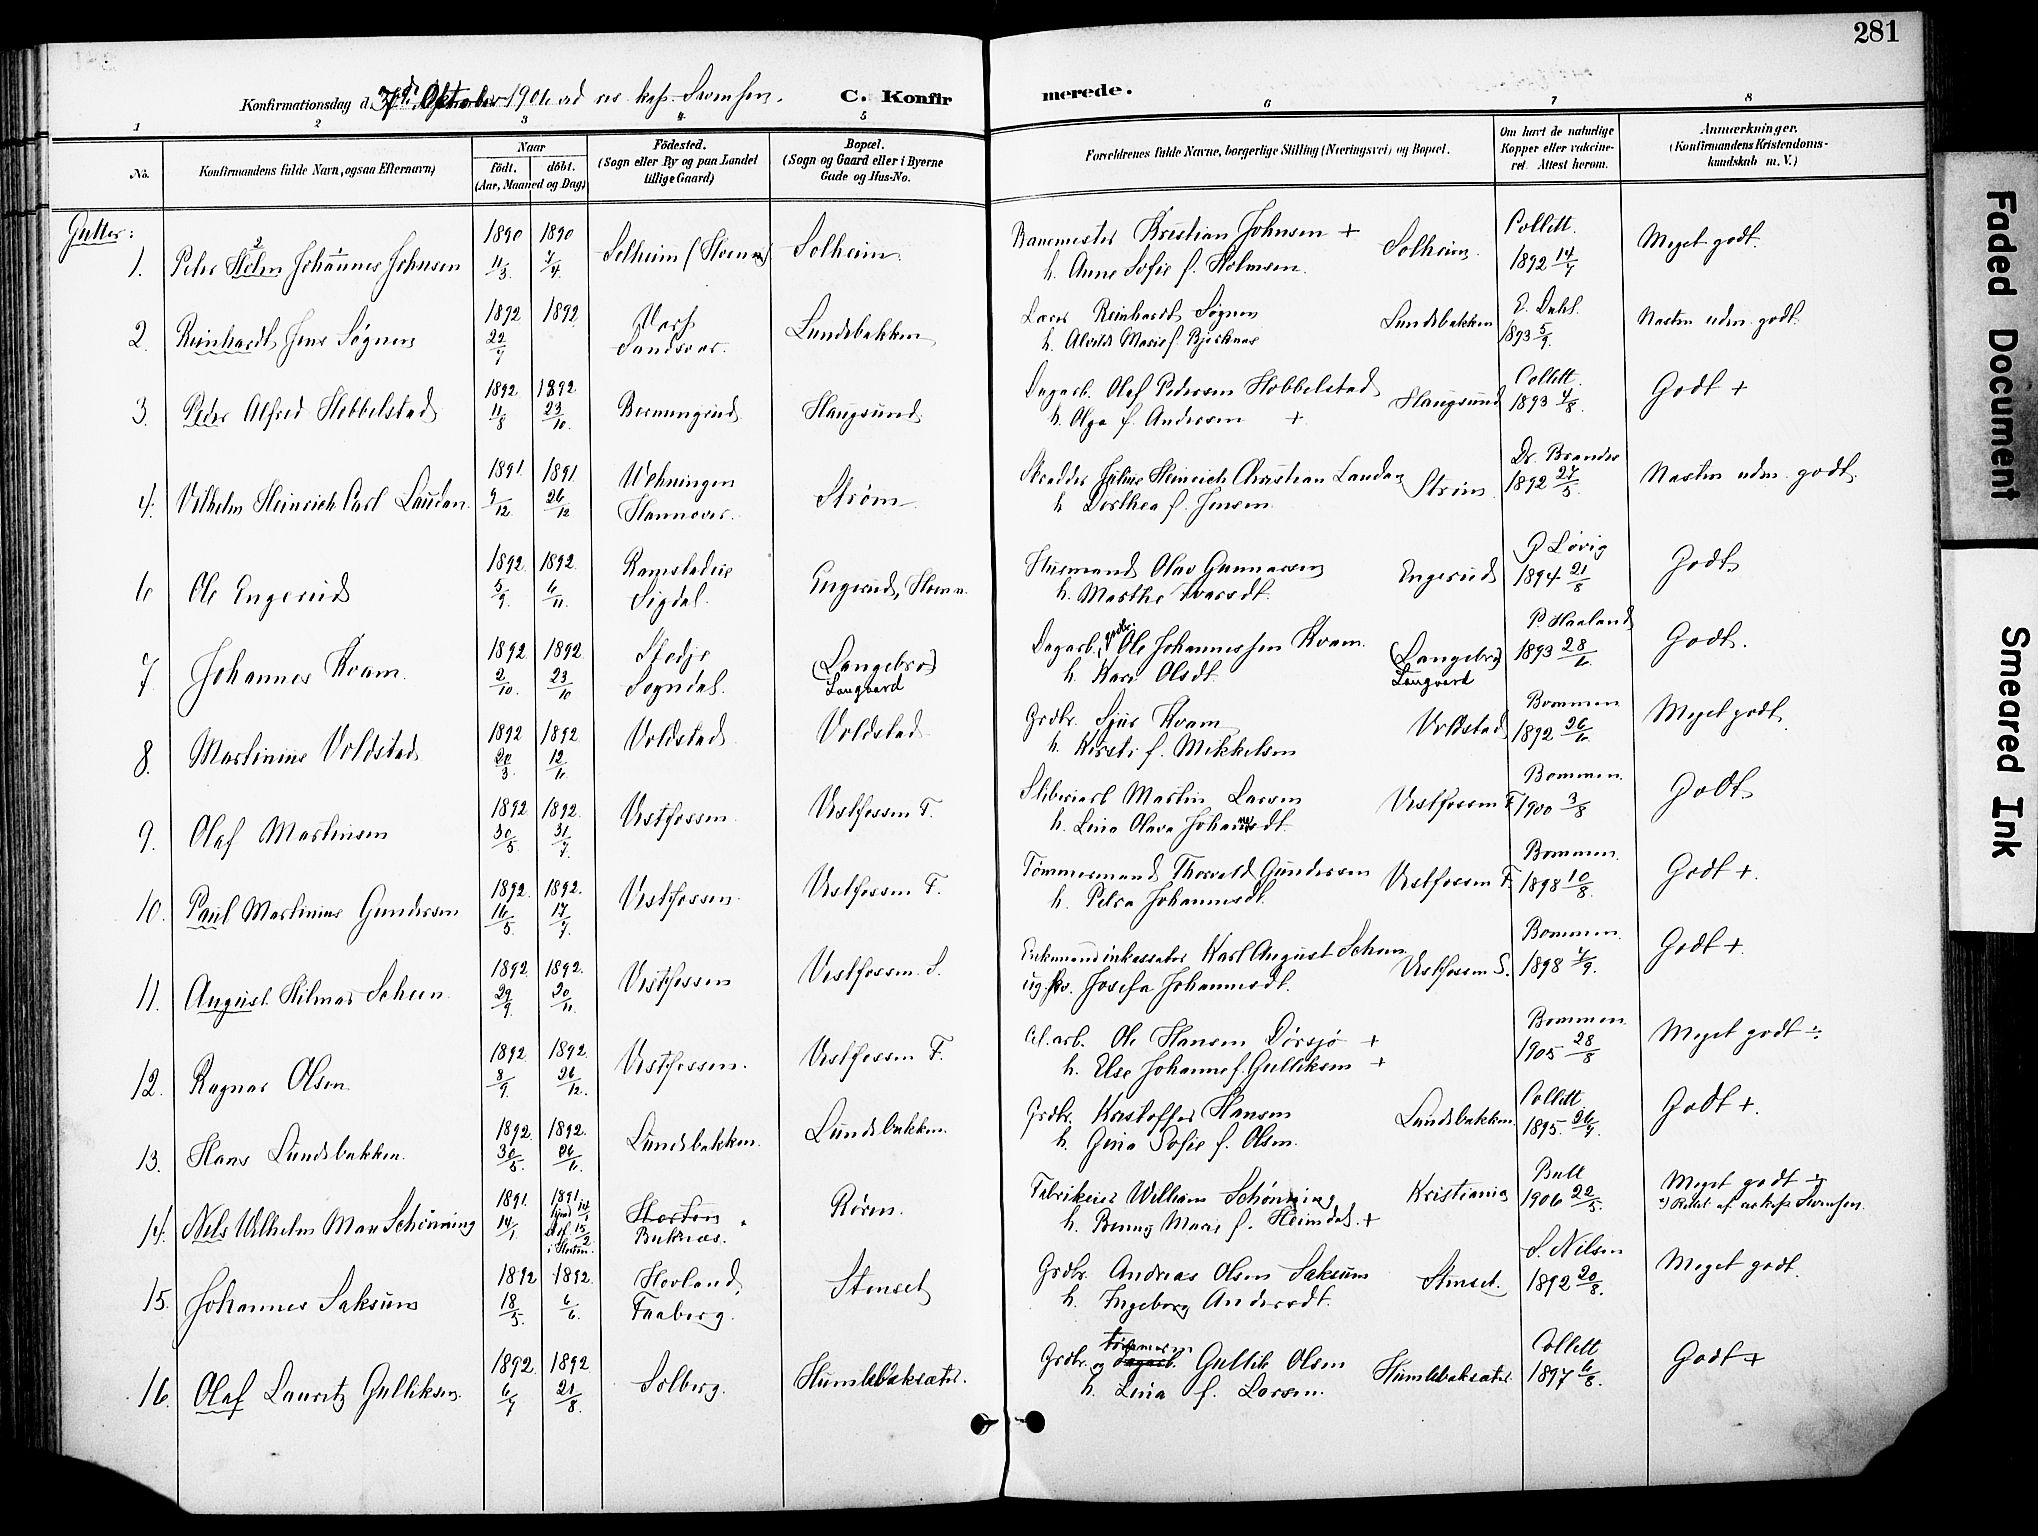 281
Konfirmationsdag d. 7d. Oktober 1906 ved res. kap. Svensen. C. Konfirmerede.
1 2 3 4 5 6 7 8
No. Konfirmandens fulde Navn, ogsaa Efternavn) Naar født. døbt. (Aar, Maaned og Dag) Fødested. (Sogn eller By og paa Landet tillige Gaard) Bopæl. (Sogn og Gaard eller i Byerne Gade og Hus-No. Forældrenes fulde Navne, borgerlige Stilling (Næringsvei) og Bopæl. Om havt de naturlige Kopper eller vaccineret. Attest herom. Anmærkninger. (Konfirmandens Kristendomskundskab m. V.)
Gutter:
1. Peder Holm Johannes Johnsen 1890 11/3 1890 7/4 Solheim (Stormen) Solheim. Banemester Kristian Johnsen + h. Anne Sofie f. Holmsen. Solheim. Collett. 1892 14/7 Meget godt.
2. Reinhardt Jens Søgnen 1892 29/7 1892 Sandsvær. Lundsbakken Lærer Reinhardt Søgnen h. Alvilde Marie f. Bjerknæs Lundsbakken E. Dahl. 1893 5/9. Næsten udm. godt.
3. Peder Alfred Hobbelstad 1892 11/8 1892 23/10 Bermingrud Haugsund Dagarb. Olaf Pedersen Hobbelstad h. Olga f. Andersen + Haugsund Collett. 1893 4/8. Godt +
4. Vilhelm Heinrich Carl Landau. 1891. 9/12 1891. 26/12 Wehningen Hannover. Strøm Skrædder Julius Heinrich Christian Landau h. Dorthea f. Jensen. Strøm. Dr. Brandes 1892 27/5. Næsten udm. godt.
6 Ole Engerud 1892. 5/9. 1892. 6/11. Ramstadeie Sigdal. Engerud, Stormn. Husmand Olav Gunnarsen h. Marthe Ivarsdt. Engerud P Løvig 1894 21/8 Godt.
7 Johannes Kvam. 1892 2/10. 1892. 23/10 Stedje Sogndal. (Langebro) Langaard Dagarb., grdbr. Ole Johannessen Kvam. h. Kari Olsdt. (Langebro) Langaard P. Haaland 1893 28/6. Godt.
8. Martinius Voldstad 1892 20/3. 1892 12/6 Voldstad Voldstad Grdbr. Sjur Kvam h. Kirsti f. Mikkelsen Voldstad Bommen 1892 26/6. Meget godt.
9. Olaf Martinsen 1892 30/5 1892. 31/7. Vestfossen Vestfossen F. Sliberiarb Martin Larsen h. Lina Olava Johannesdt. Vestfossen F. Bommen. 1900 3/8 Godt
10. Paul Martinius Gundersen 1892. 16/5. 1892. 17/7. Vestfossen. Vestfossen F. Tømmermand Thorvald Gundersen h. Petra Johannesdt. Vestfossen F. Bommen. 1898 10/8. Godt +.
11. August Hilmar Scheen. 1892. 29/9. 1892. 20/11. Vestfossen Vestfossen S. Enkemand inkassator Karl August Scheen ug. frs. Josefa Johannesdt. Vestfossen S. Bommen. 1898 4/9. Godt +
12. Ragnar Olsen 1892 8/9 1892. 26/12. Vestfossen. Vestfossen F. Cel.arb. Ole Hansen Dørsjø + h. Else Johanne f. Gulliksen + Bommen. 1905 28/8 Meget godt ÷
13. Hans Lundsbakken. 1892. 30/5. 1892. 26/6. Lundsbakken. Lundsbakken. Grdbr. Kristoffer Hansen h. Gina Sofie f. Olsen. Lundsbakken. Collett 1895. 26/7. Godt +.
14. Nels Wilhelm Max Schönning 1891. 14/1 1891 14/1 15/2 i Horten. Horten Buknæs. Røren. Fabrikeier William Schönning h. Benny Marie f. Heimdal. + Kristiania Bull 1906 22/5. Meget godt ÷ Rettet af reskap Svensen.
15. Johannes Saksum 1892 18/5. 1892. 6/6. Hovland, Faaberg. Stenset Grdbr. Andreas Olsen Saksum h. Ingeborg Andersdt. Stenset. S. Nilsen 1892 20/8. Meget godt.
16. Olaf Lauritz Gulliksen 1892. 6/7 1892 21/8. Solberg. Humlebaksæter. Grdbr. og tømmerm dagarb. Gullik Olsen h. Lina f. Larsen. Humlebaksæter Collett 1897 6/8. Godt +
Faded Document
Smeared Ink